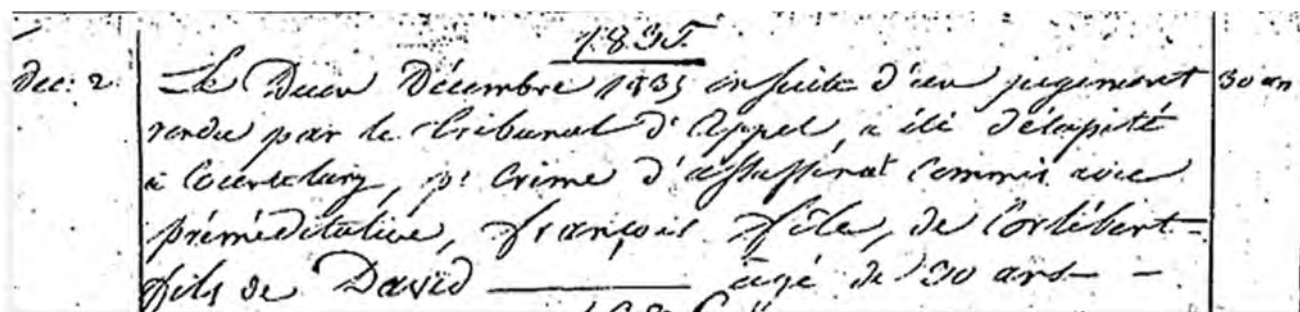 1835.
Dec: 2. Le Deux Décembre 1835 ensuite d'un jugement 30 an
rendu par le Tribunal d'Appel, a été décapité
à Courtelary, pr Crime d'assassinat commis avec
préméditation, françois de Cortébert
fils de David ——— agé de 30 ans —